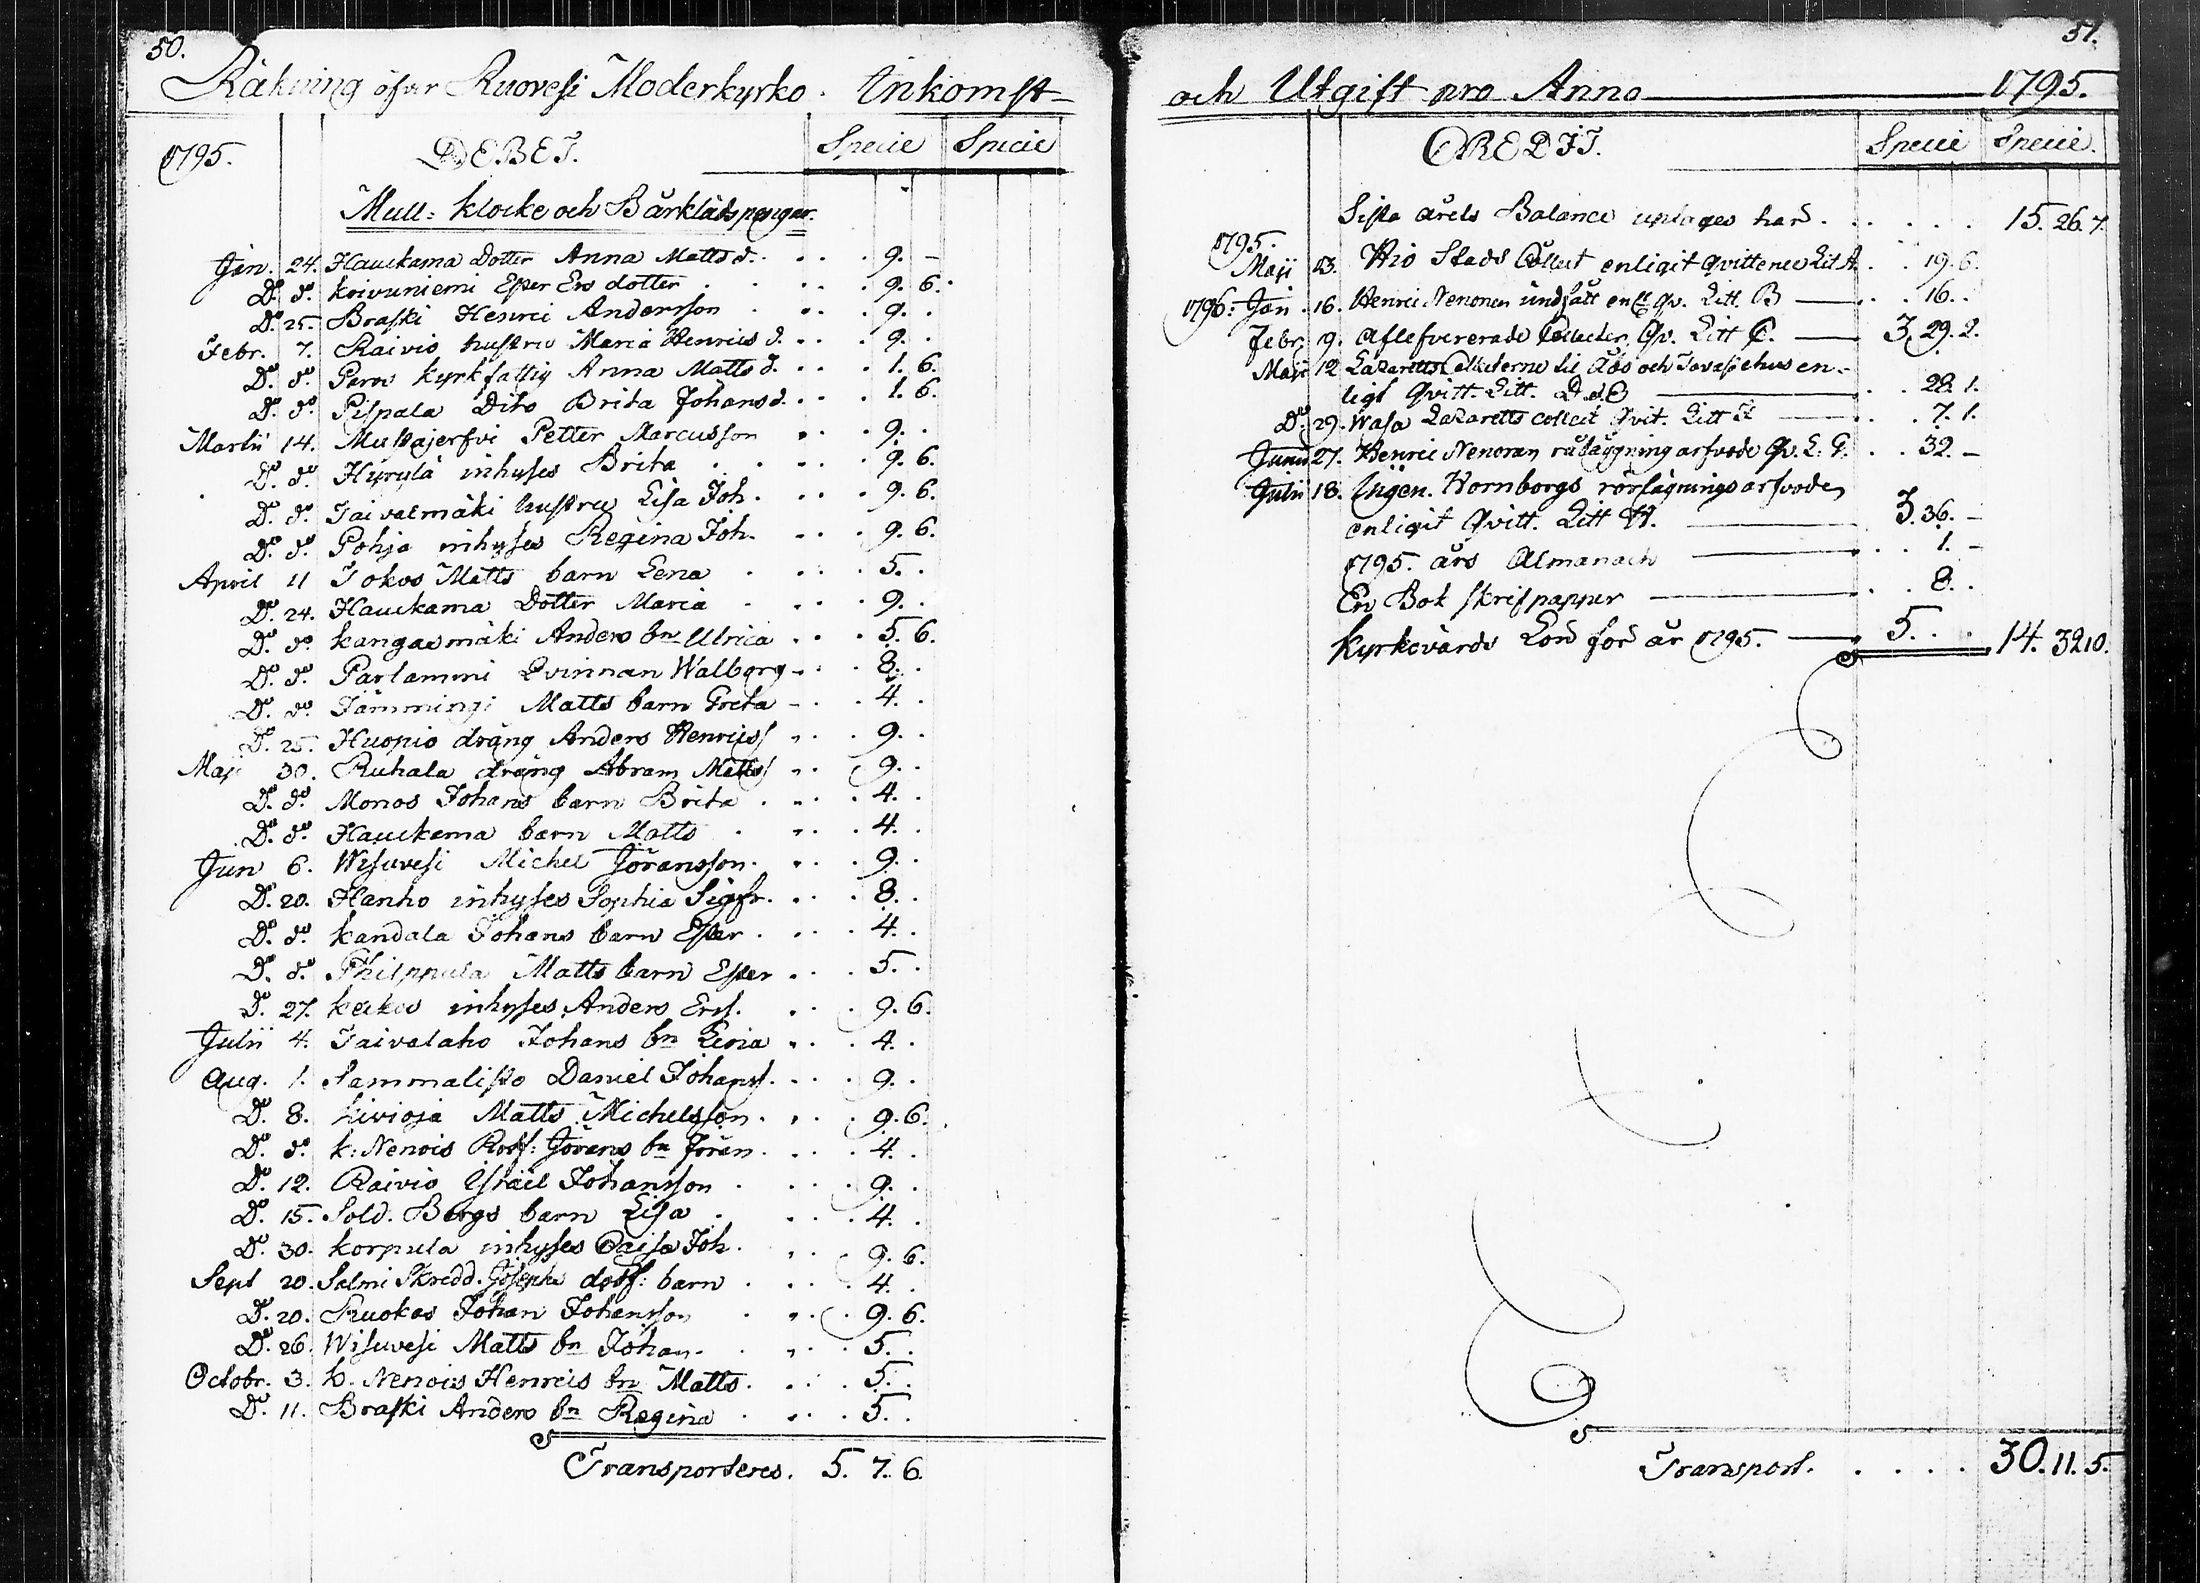 50.
Räkning öfver Ruovesi Moderkyrko Inkomst
1795. DEBET. Specie Specie
Mull= klocke och Bårklädspengar.
Jan. 24. Hauckama Dotter Anna Matts d. . . . 9. -
Dº dº koivuniemi Ester Ers dotter . . . 9. 6.
Dº 25. Braski Henric Andersson . . . 9. .
Febr. 7. Raivio hustru Maria Henrics d. . . . 9. .
Dº dº kyrkfattig Anna Matts d. . . . 1. 6.
Dº dº Pispala Dito Brita Johans d. . . . 1. 6.
Martii 14. Mustajerfvi Petter Marcusson . . . 9. .
Dº dº Hyrylä inhyses Brita . . . 9. 6.
Dº dº Taivalmäki hustru Lisa Joh. . . . 9. 6.
Dº dº Pohja inhyses Regina Joh. . . . 9. 6.
April 11 Jokos Matts barn Lena . . . 5. .
Dº 24. Hauckama Dotter Maria . . . 9. .
Dº dº kangasmäki Anders bn Ulrica . . . 5. 6.
Dº dº Parlammi Qvinnan Walborg . . . 8. .
Dº dº Jämmingi Matts barn Greta . . . 4. .
Dº 25. Huopio dräng Anders Henricss . . . 9. .
Maji 30. Ruhala dräng Abram Mattss . . . 9. .
Dº dº Monos Johans barn Brita . . . 4. .
Dº dº Hauckama barn Matts . . . 4. .
Jun 6. Wisuvesi Michel Jöransson . . . 9. .
Dº 20. Hanho inhyses Sophia Sigfr. . . . 8. .
Dº dº kandala Johans barn Ester . . . 4. .
Dº dº Philppula Matts barn Ester . . . 5. .
Dº 27. inhyses Anders Erss. . . . 9. 6.
Julii 4. Taivalaho Johans bn . . . 4. .
Aug. 1. Sammalisto Daniel Johanss. . . . 9. .
Dº 8. kivioja Matts Michelsson . . . 9. 6.
Dº dº k: Nenois Jörans bn Jöran . . . 4. .
Dº 12. Raivio Israël Johansson . . . 9. .
Dº 15. Sold. Bergs barn Lisa . . . 4. .
Dº 30. korpula inhyses Caisa Joh. . . . 9. 6.
Sept 20. Salmi Skredd. Josephs barn . . . 4. .
Dº 20. Ruokas Johan Johansson . . . 9. 6.
Dº 26. Wisuvesi Matts bn Johan . . . 5. .
Octobr. 3. k. Nenois Henrics bn Matts . . . 5. .
Dº 11. Braski Anders bn Regina . . . 5. .
Transporteres. 5. 7. 6.
51.
och Utgift pro Anno 1795.
CREDIT. Specie Specie.
Sista årets Balance uptages här . . . 15. 26. 7.
1795.
Maji 23. Stads Collect enligit Qvittence Lit A. . . 19. 6.
1796: Jan. 16. Henric Nenonen undfått enl. Qv. Litt. B . . 16. .
Febr. 9. Aflefvererade Collecter Qv. Litt C. 3. 29. 2.
Maji 12 Lazaretts Collecterne til Åbo och Tavastehus en-
ligt Qvitt. Litt. D & E . . 22. 1.
Dº 29. Wasa Lazaretts collect Qvit. Litt F . . 7. 1.
Junii 27. Henric Nenonen arfvode Qv. L. G. . . 32. -
Julii 18. Ingen. Hornborgs arfvode
enligit Qvitt. Litt H. 3. 36. -
1795. års Almanach . . 1. -
En Bok skrifpapper . . 8. .
kyrkovärds Lön för år 1795. 5. . . 14. 32 10.
Transport. . . . . 30. 11. 5.